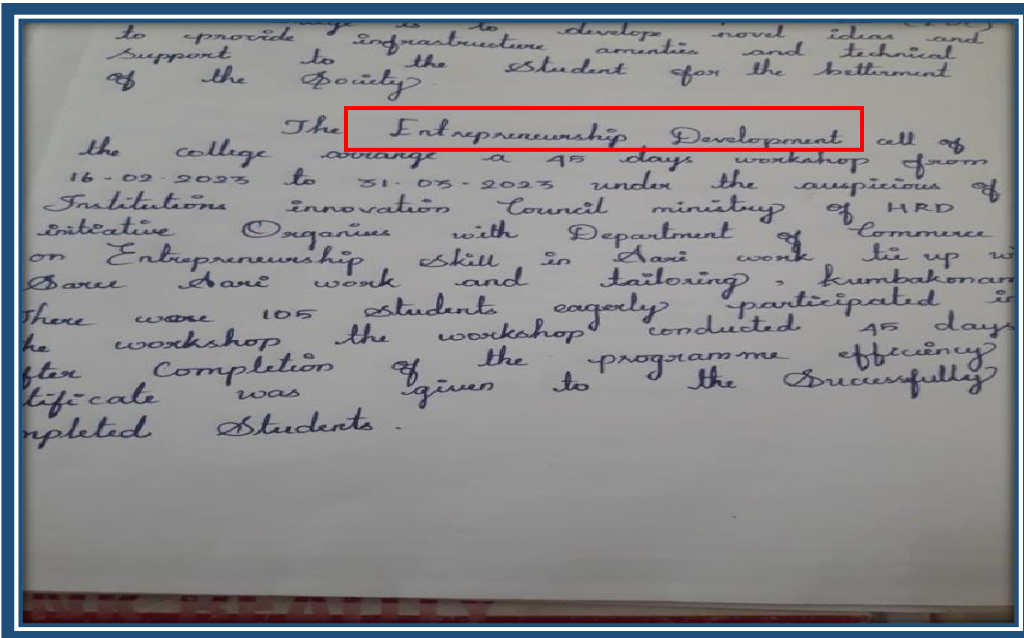 is to develope novel ideas and
to provide infrastructure amenties and technical
Support to the Student for the betterment
of the Society.
The Entrepreneurship Development cell of
the college arrange a 45 days workshop from
16-02-2023 to 31-03-2023 under the auspicious of
Institutions innovation Council ministry of HRD
initiative Organises with Department of Commerce
on Entrepreneurship skill in Aari work tie up
Saree Aari work and tailoring, kumbakonam
There were 105 students eagerly participated in
the workshop the workshop conducted 45 days
fter Completion of the programme efficiency
tificate was given to the Successfully
mpleted Students.